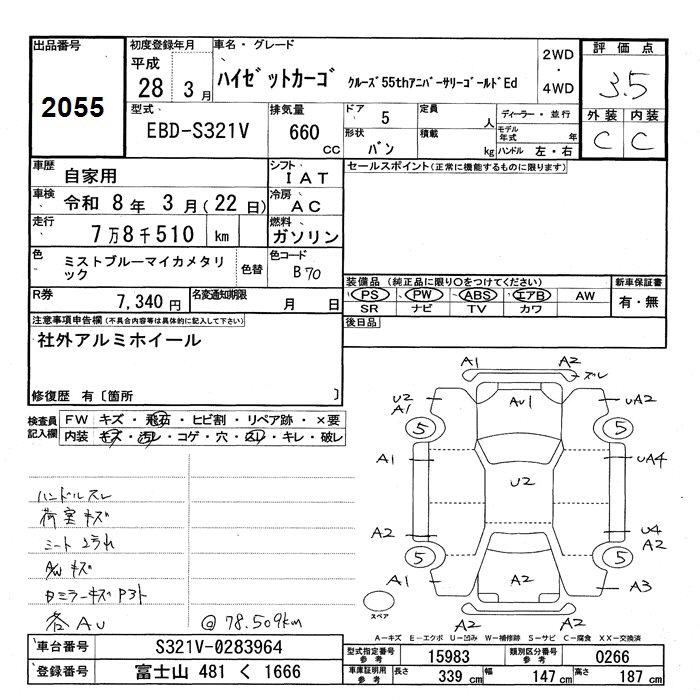 出品番号 初度登録年月 車名・グレード 2WD 評価点
2055 平成 28 3月 ハイゼットカーゴ クルーズ55thアニバーサリーゴールドEd ・ 4WD 3.5
型式 排気量 ドア 5 定員 人 ディーラー・並行 外装 内装
EBD-S321V 660 CC 形状 バン 積載 kg モデル年式 年 ハンドル 左・右 C C
車歴 自家用 シフト IAT セールスポイント(正常に機能するものに限ります)
車検 令和 8年 3月(22日) 冷房 AC
走行 7万8千510 km 燃料 ガソリン
色 ミストブルーマイカメタリック 色替 色コード B70
装備品(純正品に限り○をつけてください) 新車保証書
R券 7,340円 名変通知期限 月 日 PS PW ABS エアB AW 有・無
SR ナビ TV カワ
注意事項申告欄(不具合内容等は具体的に記入して下さい) 後日品
社外アルミホイール
修復歴 有〔箇所 〕
検査員記入欄 FW キズ・飛石・ヒビ割・リペア跡・×要
内装 キズ・汚レ・コゲ・穴・スレ・キレ・破レ
A1 A2 ズレ
U2 A1 AU1 UA2
5 5
A1 U2 UA4
A2 U4 A2
5 5
A1 A2 A3
A2 A2
スペア
ハンドルスレ
荷室キズ
シートヨゴれ
A/Wキズ
各AU @78.509km
A−キズ E−エクボ U−凹み W−補修跡 S−サビ C−腐食 XX−交換済
車台番号 S321V-0283964 型式指定番号 参考 15983 類別区分番号 参考 0266
登録番号 富士山 481 く 1666 車庫証明用 参考 長さ 339 cm 幅 147 cm 高さ 187 cm